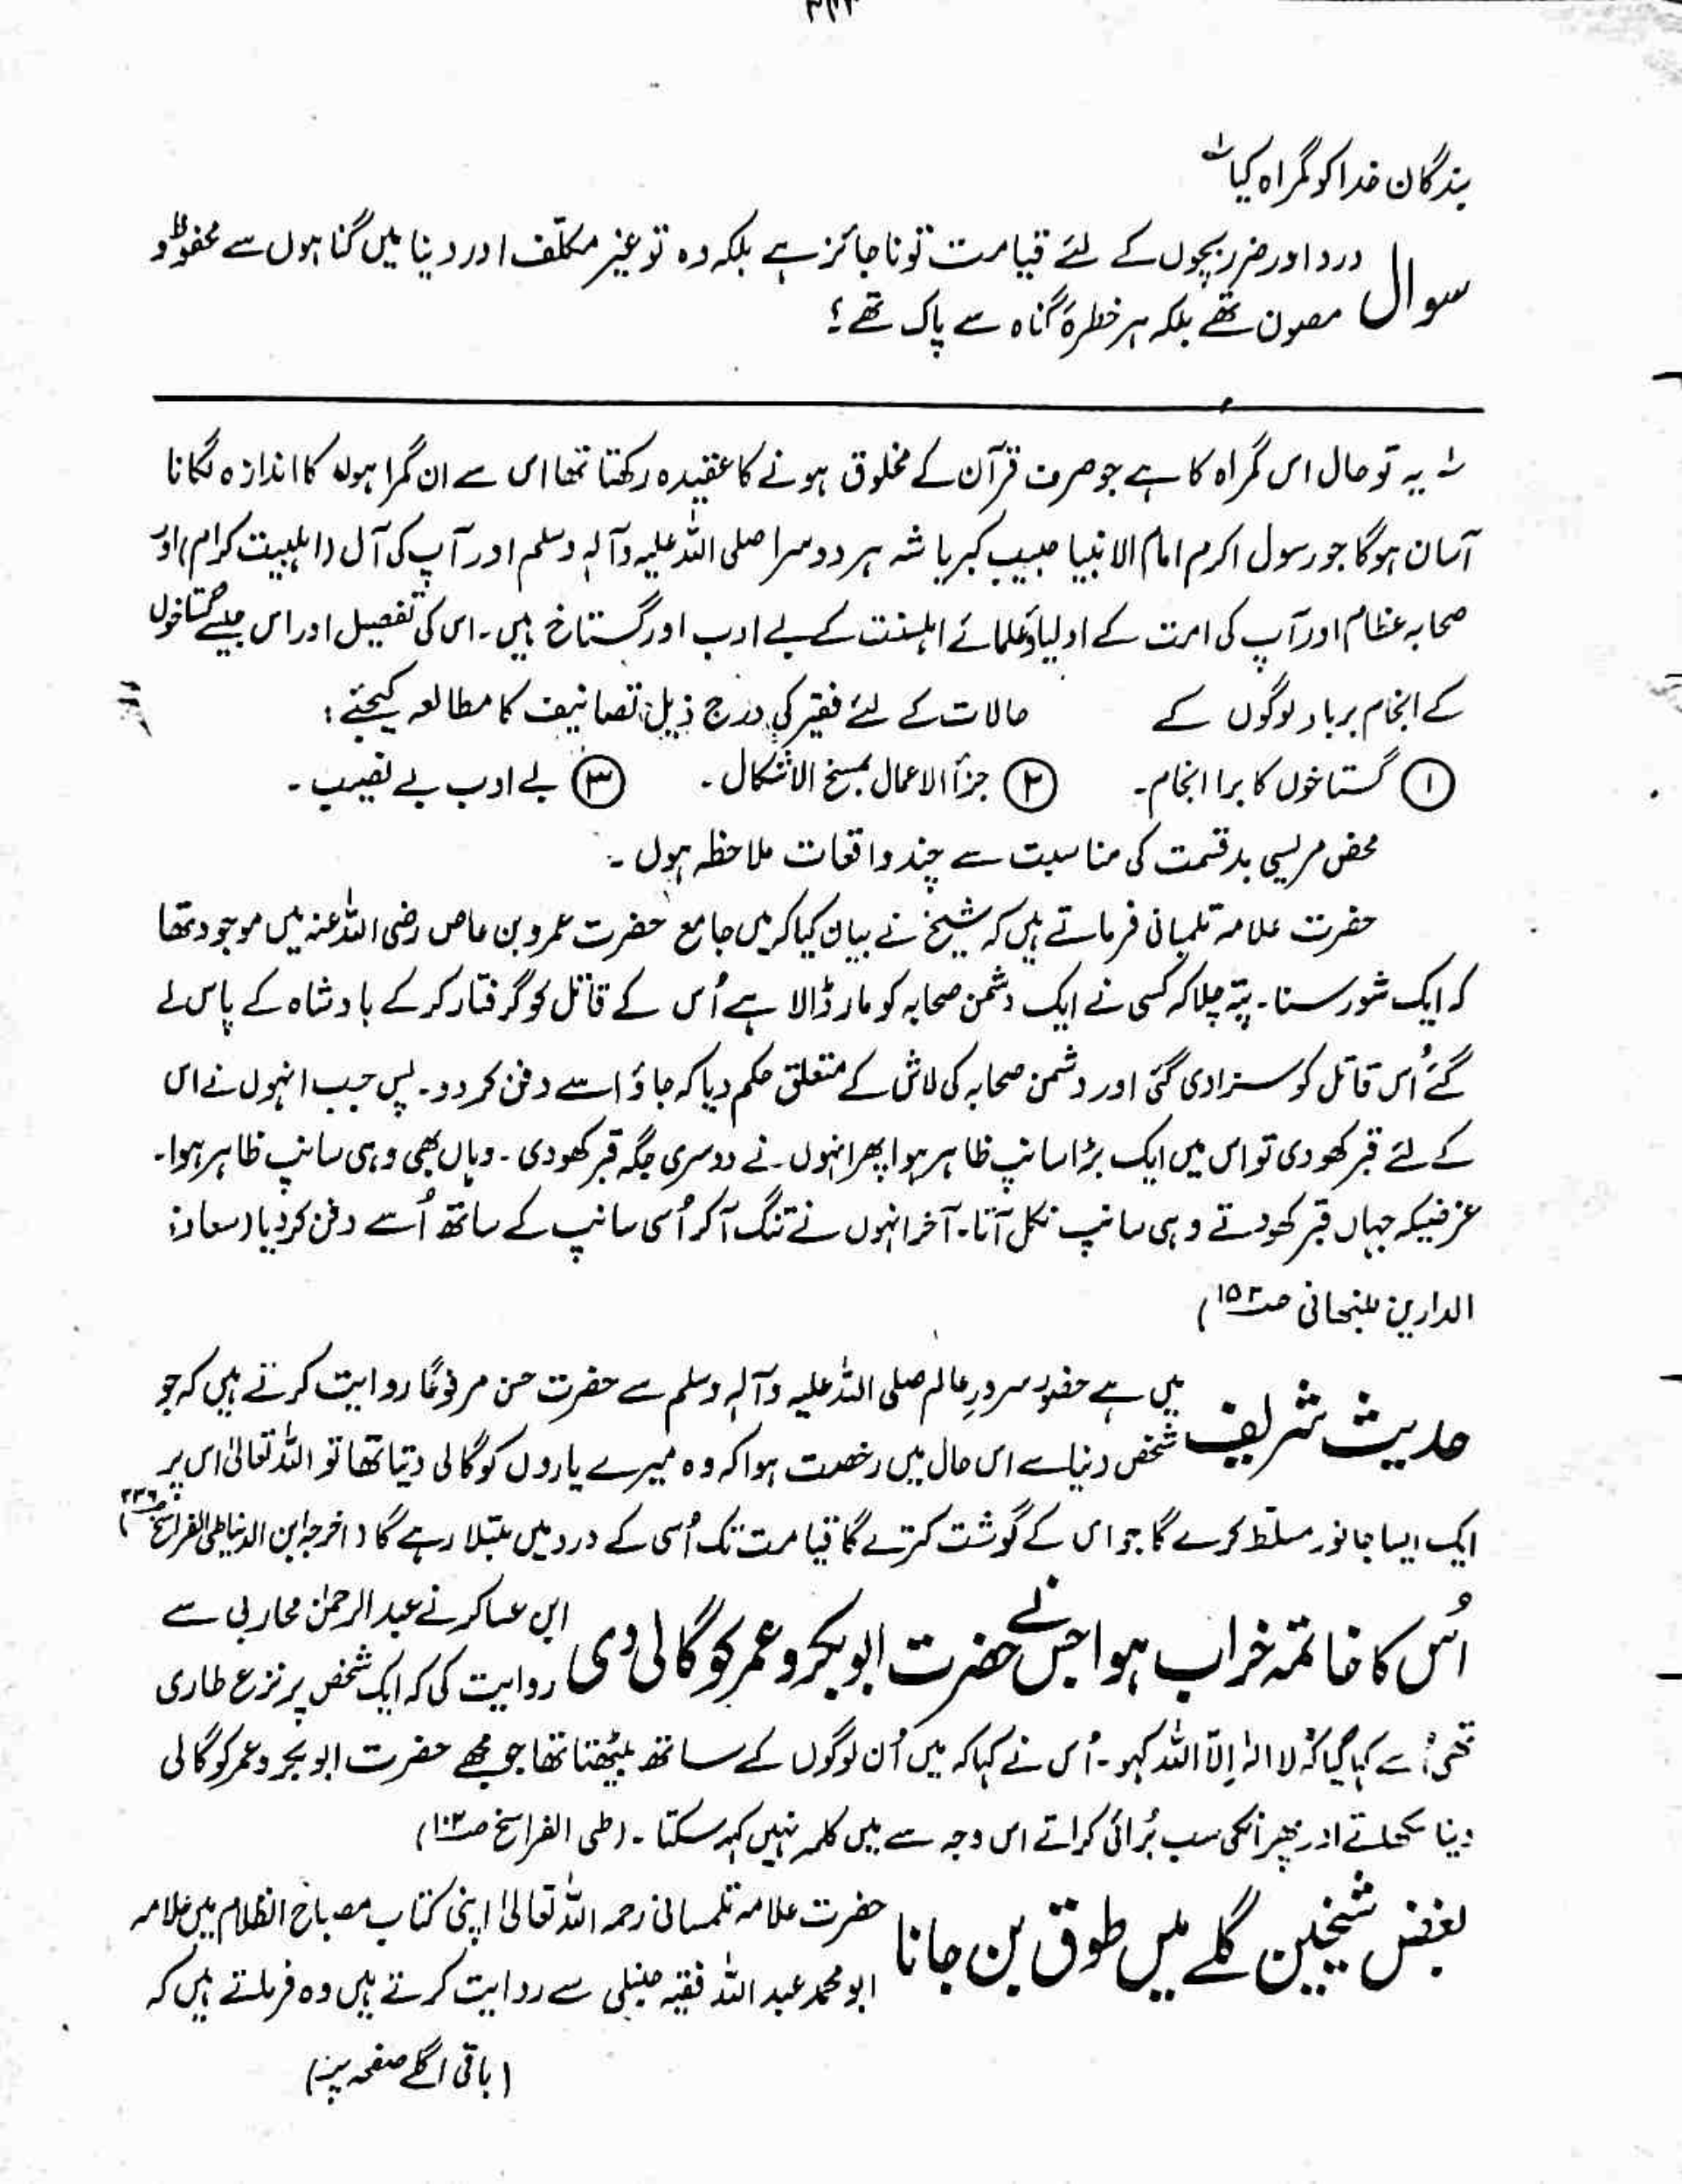 بندگان خدا کو گمراہ کیا ؂
سوال درد اور ضرر بچوں کے لئے قیامت تو ناجائز ہے بلکہ وہ تو غیر مکلّف اور دنیا میں گناہوں سے محفوظ و
مصون تھے بلکہ ہر خطرۂ گناہ سے پاک تھے ؟
؂ یہ تو حال اس گمراہ کا ہے جو صرف قرآن کے مخلوق ہونے کا عقیدہ رکھتا تھا اس سے ان گمراہوں کا اندازہ لگانا
آسان ہوگا جو رسول اکرم امام الانبیا حبیب کبریا شہ ہر دوسرا صلی اللہ علیہ وآلہ وسلم اور آپ کی آل (اہلبیت کرام) اور
صحابہ عظام اور آپ کی امت کے اولیاء وعلمائے اہلسنت کے بے ادب اور گستاخ ہیں۔ اس کی تفصیل اور اس جیسے گستاخوں
کے انجام برباد لوگوں کے حالات کے لئے فقیر کی درج ذیل تصانیف کا مطالعہ کیجئے :
① گستاخوں کا برا انجام۔ ② جزأ الاعمال بمسخ الاشکال۔ ③ بے ادب بے نصیب ۔
محض مریسی بدقسمت کی مناسبت سے چند واقعات ملاحظہ ہوں ۔
حضرت علامہ تلمسانی فرماتے ہیں کہ شیخ نے بیان کیا کہ میں جامع حضرت عمرو بن عاص رضی اللہ عنہ میں موجود تھا
کہ ایک شور سنا۔ پتہ چلا کہ کسی نے ایک دشمن صحابہ کو مار ڈالا ہے اُس کے قاتل کو گرفتار کر کے بادشاہ کے پاس لے
گئے اُس قاتل کو سزا دی گئی اور دشمن صحابہ کی لاش کے متعلق حکم دیا کہ جاؤ اسے دفن کردو۔ پس جب انہوں نے اس
کے لئے قبر کھودی تو اس میں ایک بڑا سانپ ظاہر ہوا پھر انہوں نے دوسری جگہ قبر کھودی ۔ وہاں بھی وہی سانپ ظاہر ہوا۔
غرضیکہ جہاں قبر کھودتے وہی سانپ نکل آتا۔ آخر انہوں نے تنگ آ کر اُسی سانپ کے ساتھ اُسے دفن کردیا (سعادۃ
الدارین للنبہانی صـ۱۵۲)
حدیث شریف میں ہے حضور سرورِ عالم صلی اللہ علیہ وآلہ وسلم سے حضرت حسن مرفوعًا روایت کرتے ہیں کہ جو
شخص دنیا سے اس حال میں رخصت ہوا کہ وہ میرے یاروں کو گالی دیتا تھا تو اللہ تعالیٰ اس پر
ایک ایسا جانور مسلط کرے گا جو اس کے گوشت کترے گا قیامت تک اُسی کے درد میں مبتلا رہے گا (اخرجہ ابن ابی الدنیا طی الفراسخ صـ۲۳۶)
اُس کا خاتمہ خراب ہوا جس نے حضرت ابوبکر و عمر کو گالی دی ابن عساکر نے عبد الرحمٰن محاربی سے
روایت کی کہ ایک شخص پر نزع طاری
تھی اُسے کہا گیا کہ لا الٰہ اِلّا اللہ کہو۔ اُس نے کہا کہ میں اُن لوگوں کے ساتھ بیٹھتا تھا جو مجھے حضرت ابوبکر و عمر کو گالی
دینا سکھلاتے اور پھر انکی سب بُرائی کراتے اس وجہ سے میں کلمہ نہیں کہہ سکتا ۔ (طی الفراسخ صـ۱۰۲)
بغض شیخین گلے میں طوق بن جانا حضرت علامہ تلمسانی رحمہ اللہ تعالیٰ اپنی کتاب مصباح الظلام میں علامہ
ابو محمد عبد اللہ فقیہ حنبلی سے روایت کرتے ہیں وہ فرماتے ہیں کہ
(باقی اگلے صفحہ پر)